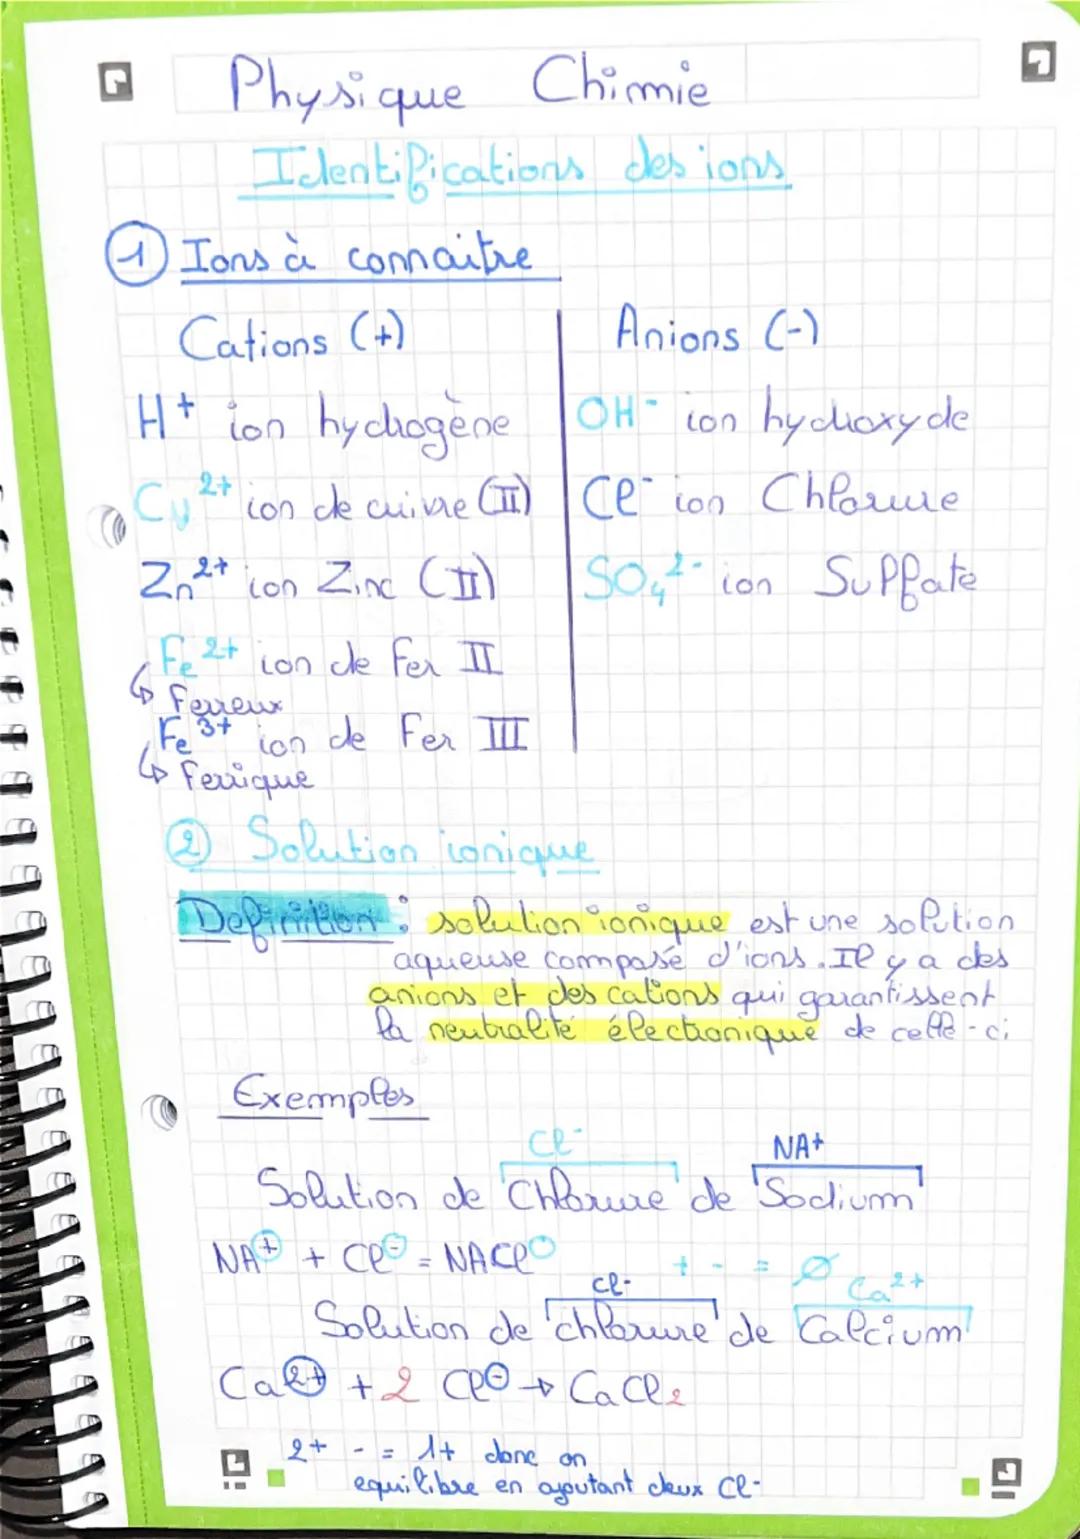 Physique Chimie
Identifications des ions
1 Ions à connaitre
Cations (+)
H+ ion hydrogène
Cu2+ ion de cuivre (II)
Zn2+ ion Zinc (II)
Fe2+ ion de Fer II
↳ Ferreux
Fe3+ ion de Fer III
↳ Ferrique
Anions (-)
OH- ion hydroxyde
Cl- ion Chlorure
SO₄2- ion Sulfate
2 Solution ionique
Definition : solution ionique est une solution
aqueuse composé d'ions. Il y a des
anions et des cations qui garantissent
la neutralité électronique de celle-ci
Exemples
Cl- NA+
Solution de "Chlorure" de "Sodium"
NA+ + Cl- = NACl○
+ - = Ø
Cl- Ca2+
Solution de "chlorure" de "Calcium"
Ca2+ + 2 Cl- → CaCl₂
2+ - = 1+ donc on
equilibre en ajoutant deux Cl-